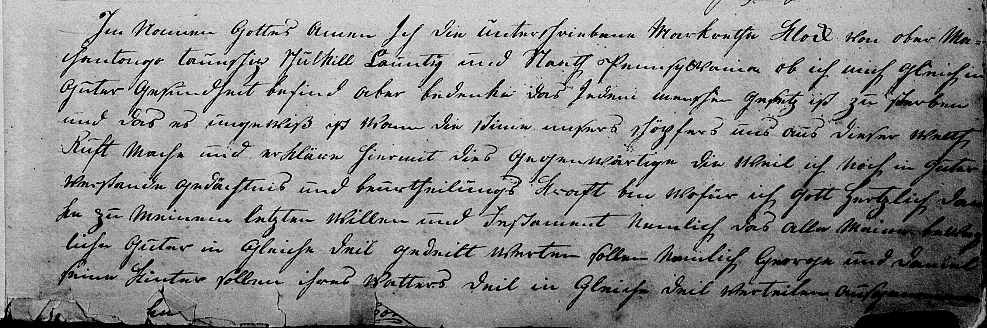 Im Namen Gottes Amen Ich die unterschriebene Markretha Klock von ober Ma=
hentongo taunship Schulkill Caunty und Staath Pensylvania ob ich mich gleich in
guter Gesundheit befind aber bedenke das jedem menschen gesetz ist zu sterben
und das es ungewiß ist wan die stime unsers schöpfers uns aus dieser welth
Ruft Mache und erkläre hiermit dies gegenwärtige die weil ich noch in guter
verstande gedächtnis und beurtheilungs kraft bin wofür ich gott hertzlich dan
ke zu meinem letzten willen und Testament nemlich das alle meine beweg
liche güter in gleiche deil gedeilt werten sollen nemlich George und Daniel
seine kinter sollen ihres vatters deil in gleiche deil verteilen